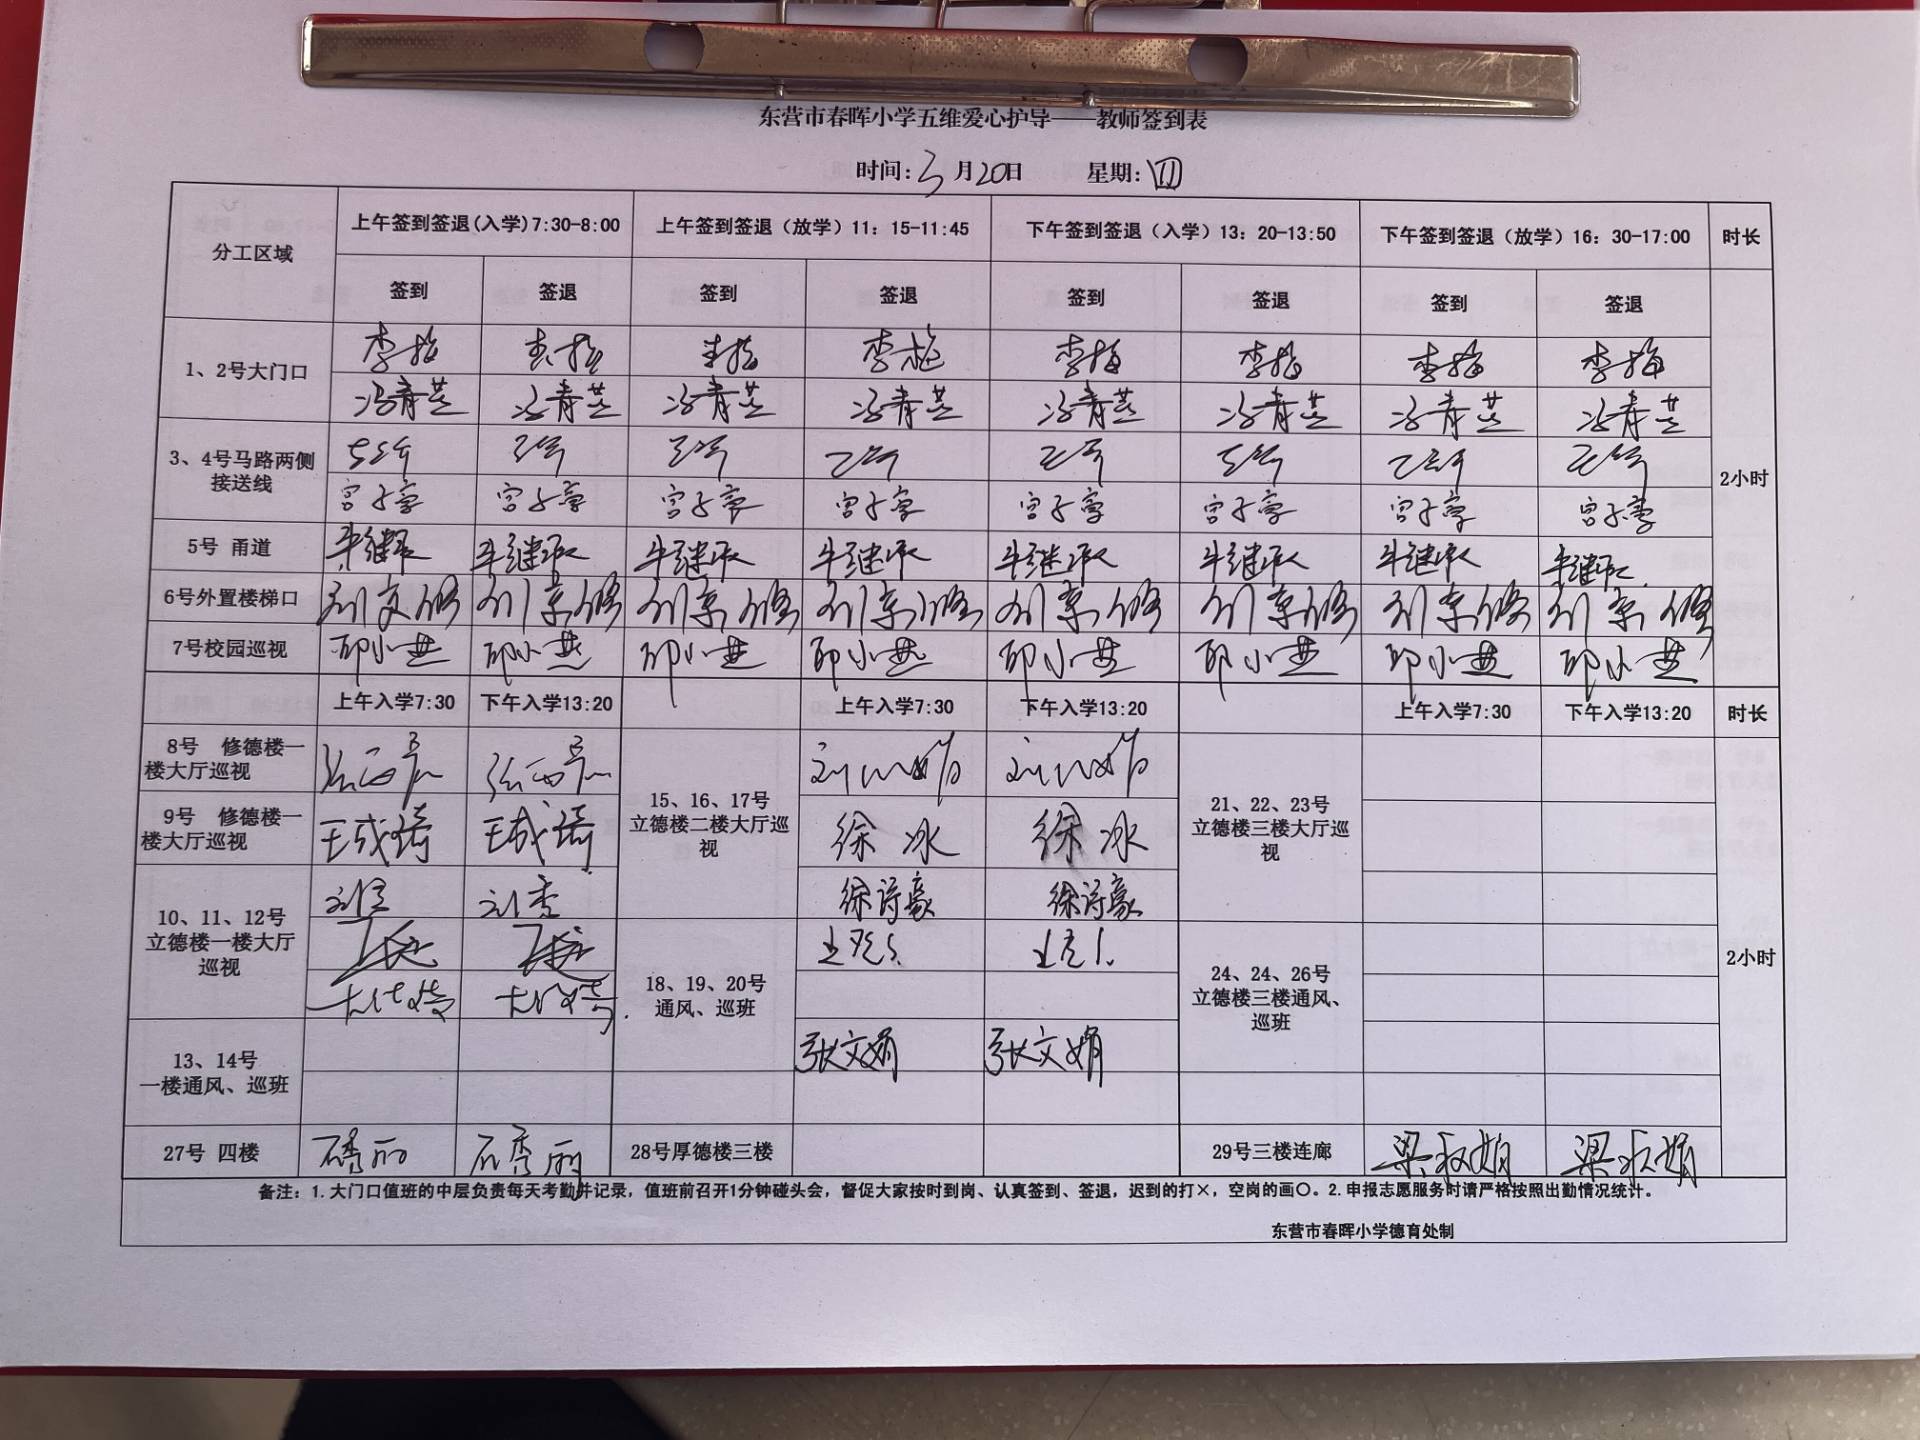 东营市春晖小学五维爱心护导——教师签到表
时间:3月20日 星期:四
分工区域 上午签到签退(入学)7:30-8:00 上午签到签退（放学）11：15-11:45 下午签到签退（入学）13：20-13:50 下午签到签退（放学）16：30-17:00 时长
签到 签退 签到 签退 签到 签退 签到 签退
1、2号大门口 李梅 李梅 李梅 李梅 李梅 李梅 李梅 李梅
冯青芝 冯青芝 冯青芝 冯青芝 冯青芝 冯青芝 冯青芝 冯青芝
3、4号马路两侧
接送线
2小时
宫子寧 宫子寧 宫子寧 宫子寧 宫子寧 宫子寧 宫子寧 宫子寧
5号 甬道 牛继承 牛继承 牛继承 牛继承 牛继承 牛继承 牛继承 牛继承
6号外置楼梯口 刘京修 刘京修 刘京修 刘京修 刘京修 刘京修 刘京修 刘京修
7号校园巡视 邱小燕 邱小燕 邱小燕 邱小燕 邱小燕 邱小燕 邱小燕 邱小燕
上午入学7:30 下午入学13:20 上午入学7:30 下午入学13:20 上午入学7:30 下午入学13:20 时长
8号 修德楼一
楼大厅巡视
9号 修德楼一
楼大厅巡视
王成琦 王成琦
15、16、17号
立德楼二楼大厅巡
视
徐冰 徐冰
徐诗豪 徐诗豪
21、22、23号
立德楼三楼大厅巡
视
10、11、12号
立德楼一楼大厅
巡视
刘秀
18、19、20号
通风、巡班
张文娟 张文娟
24、24、26号
立德楼三楼通风、
巡班
2小时
13、14号
一楼通风、巡班
27号 四楼 石秀丽 石秀丽 28号厚德楼三楼 29号三楼连廊 梁叔娟 梁叔娟
备注：1.大门口值班的中层负责每天考勤并记录，值班前召开1分钟碰头会，督促大家按时到岗、认真签到、签退，迟到的打×，空岗的画〇。2.申报志愿服务时请严格按照出勤情况统计。
东营市春晖小学德育处制